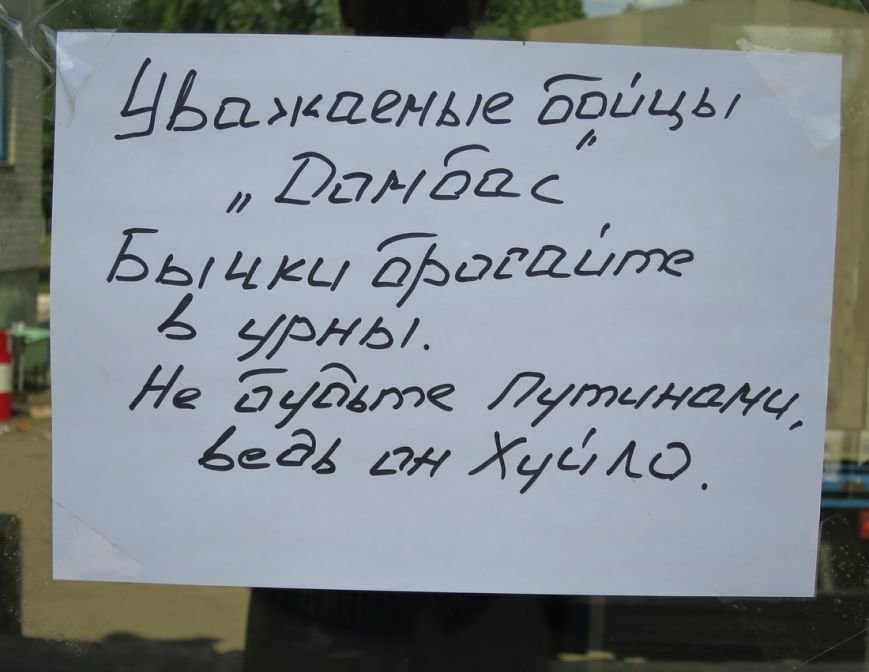 Уважаемые бойцы
„Донбас"
Бычки бросайте
в урны.
Не будьте Путинами,
ведь он Хуйло.